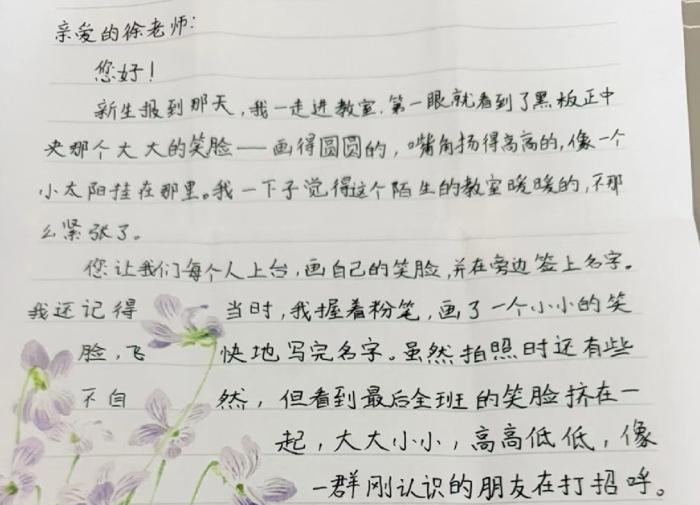 亲爱的徐老师：
您好！
新生报到那天，我一走进教室，第一眼就看到了黑板正中
央那个大大的笑脸——画得圆圆的，嘴角扬得高高的，像一个
小太阳挂在那里。我一下子觉得这个陌生的教室暖暖的，不那
么紧张了。
您让我们每个人上台，画自己的笑脸，并在旁边签上名字。
我还记得当时，我握着粉笔，画了一个小小的笑
脸，飞快地写完名字。虽然拍照时还有些
不自然，但看到最后全班的笑脸挤在一
起，大大小小，高高低低，像
一群刚认识的朋友在打招呼。